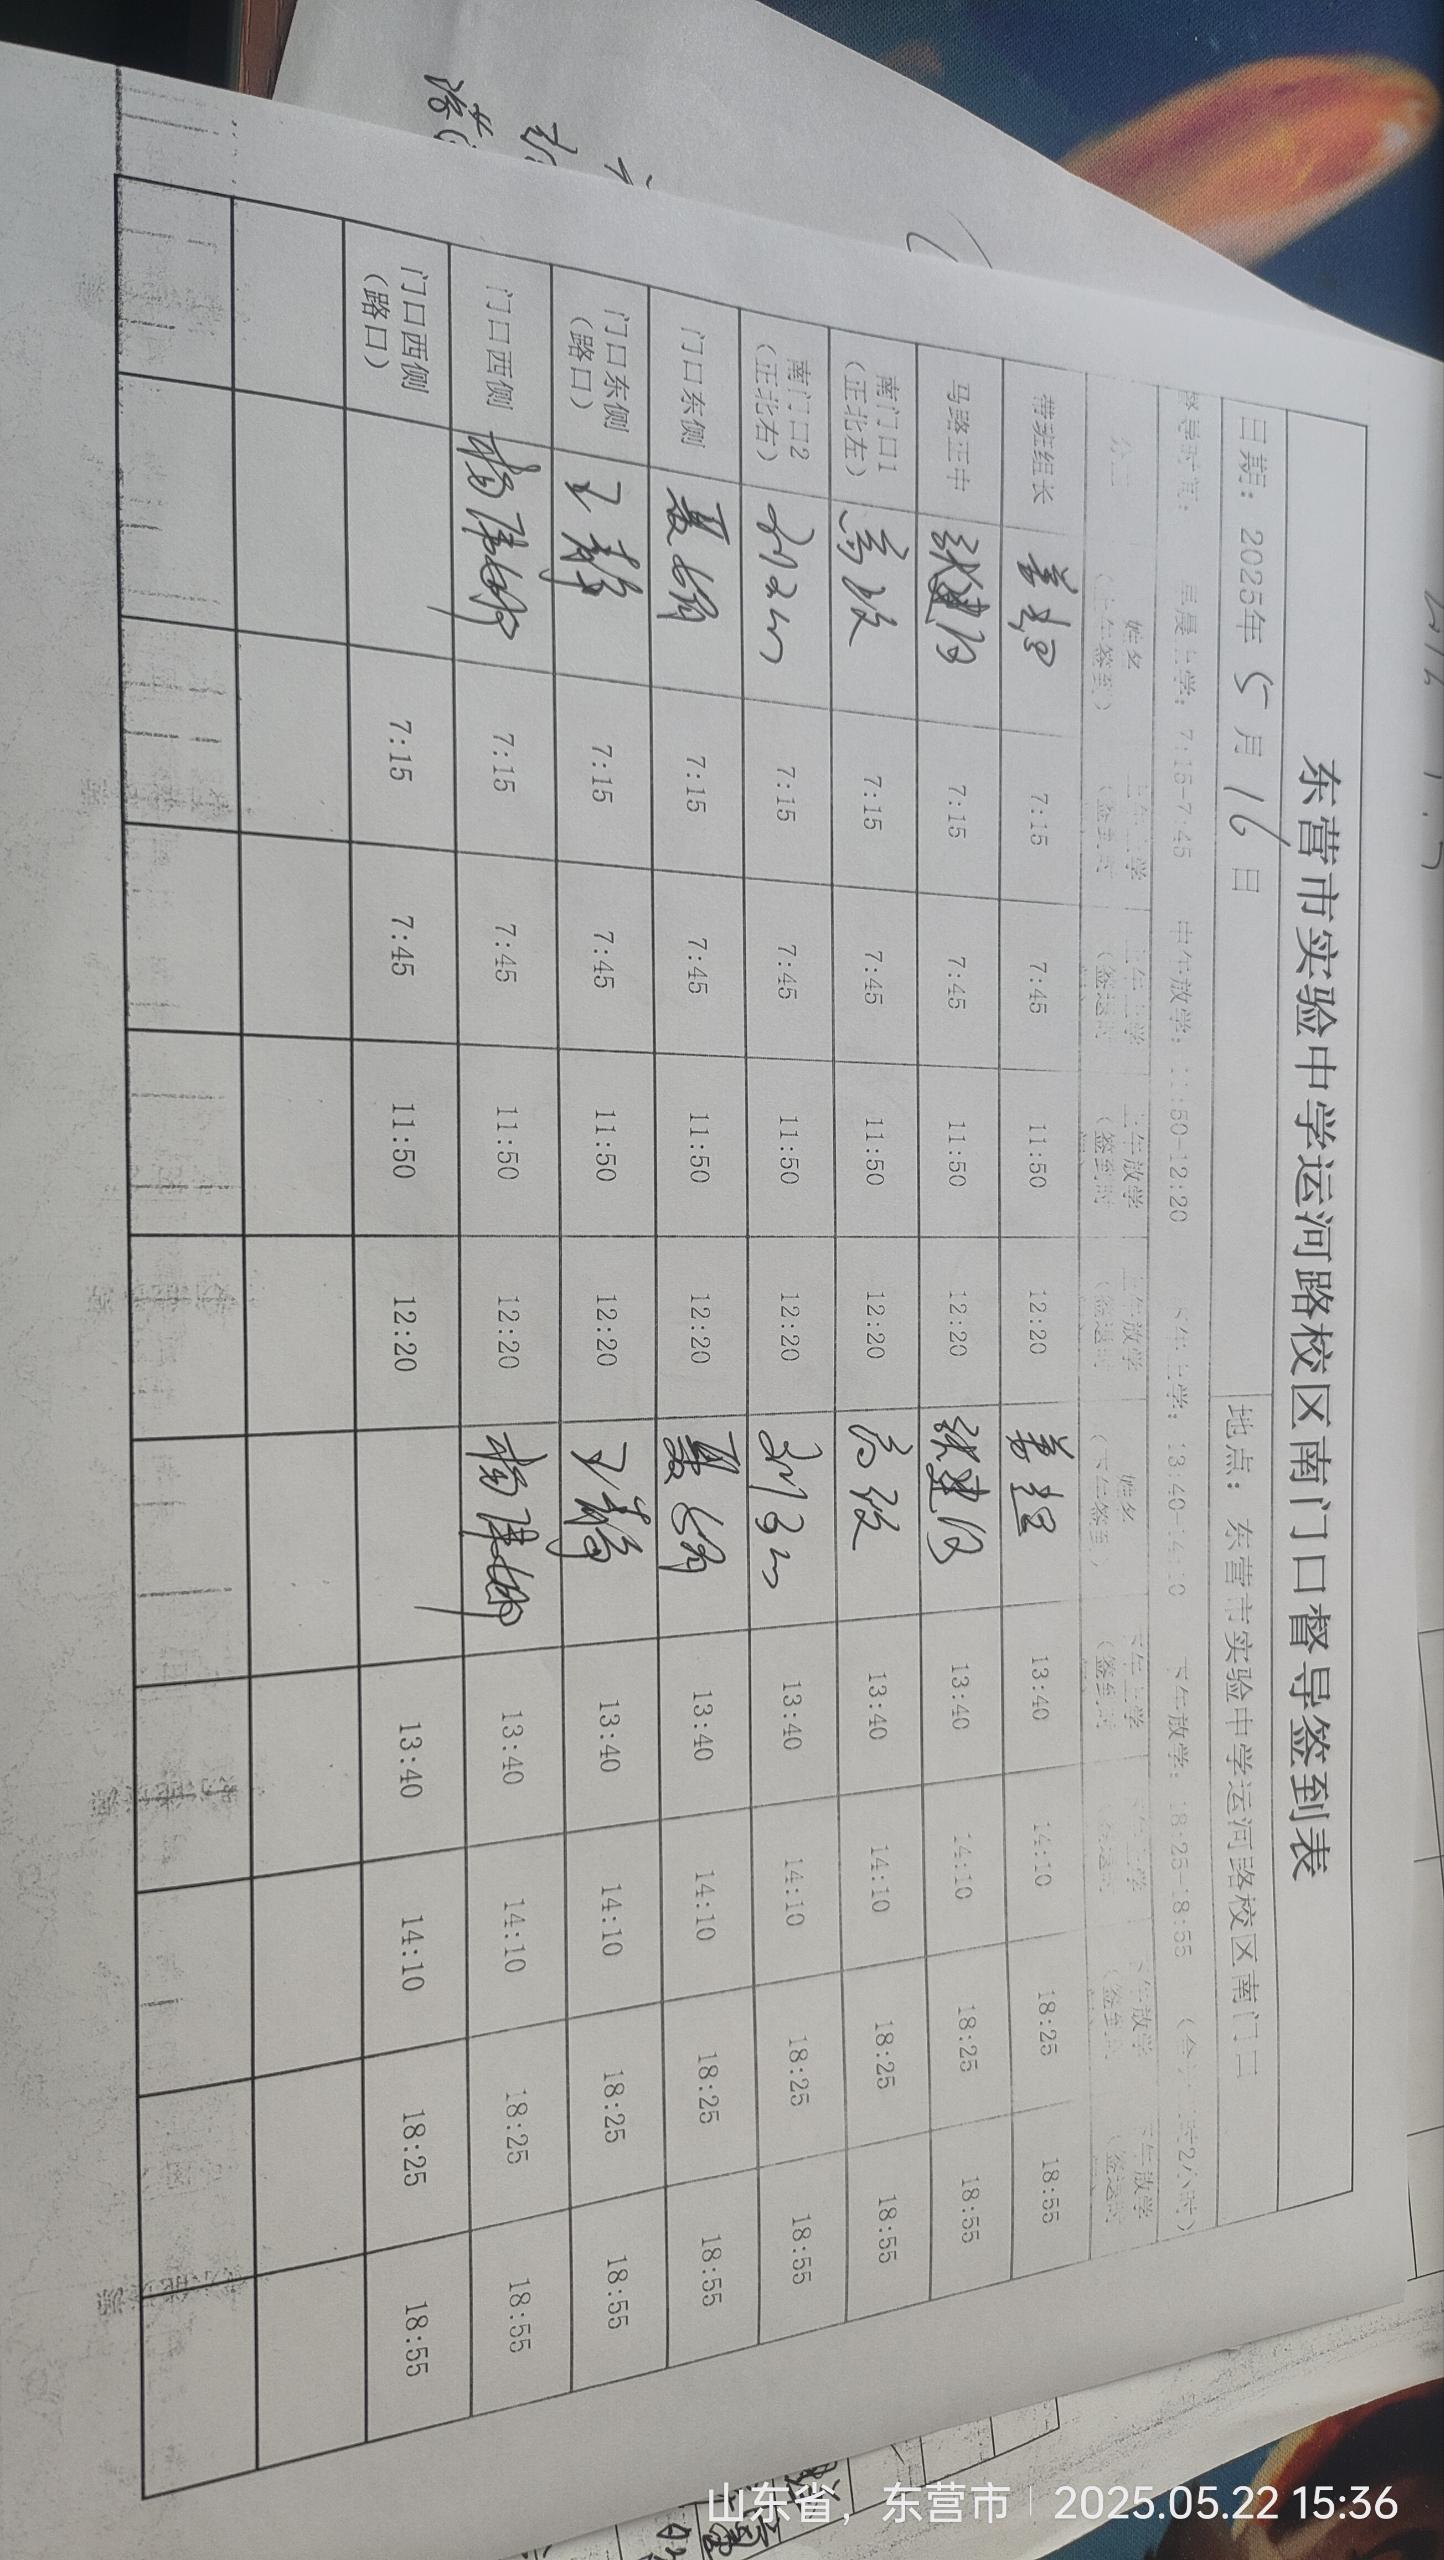 东营市实验中学运河路校区南门口督导签到表
日期： 2025年 5 月 16 日 地点： 东营市实验中学运河路校区南门口
督导时间： 早晨上学：7:15-7:45 中午放学：11:50-12:20 下午上学：13:40-14:10 下午放学：18:25-18:55
姓名（上午签到） 上午上学（签到时 上午上学（签退时 上午放学（签到时 上午放学（签退时 姓名（下午签到） 下午上学（签到时 下午上学（签退时 下午放学（签到时 下午放学（签退时
带班组长 7:15 7:45 11:50 12:20 13:40 14:10 18:25 18:55
马路正中 张建 7:15 7:45 11:50 12:20 张建 13:40 14:10 18:25 18:55
南门口1（正北左） 7:15 7:45 11:50 12:20 13:40 14:10 18:25 18:55
南门口2（正北右） 7:15 7:45 11:50 12:20 13:40 14:10 18:25 18:55
门口东侧 7:15 7:45 11:50 12:20 13:40 14:10 18:25 18:55
门口东侧（路口） 王静 7:15 7:45 11:50 12:20 王静 13:40 14:10 18:25 18:55
门口西侧 杨 7:15 7:45 11:50 12:20 杨 13:40 14:10 18:25 18:55
门口西侧（路口） 7:15 7:45 11:50 12:20 13:40 14:10 18:25 18:55
山东省，东营市 2025.05.22 15:36